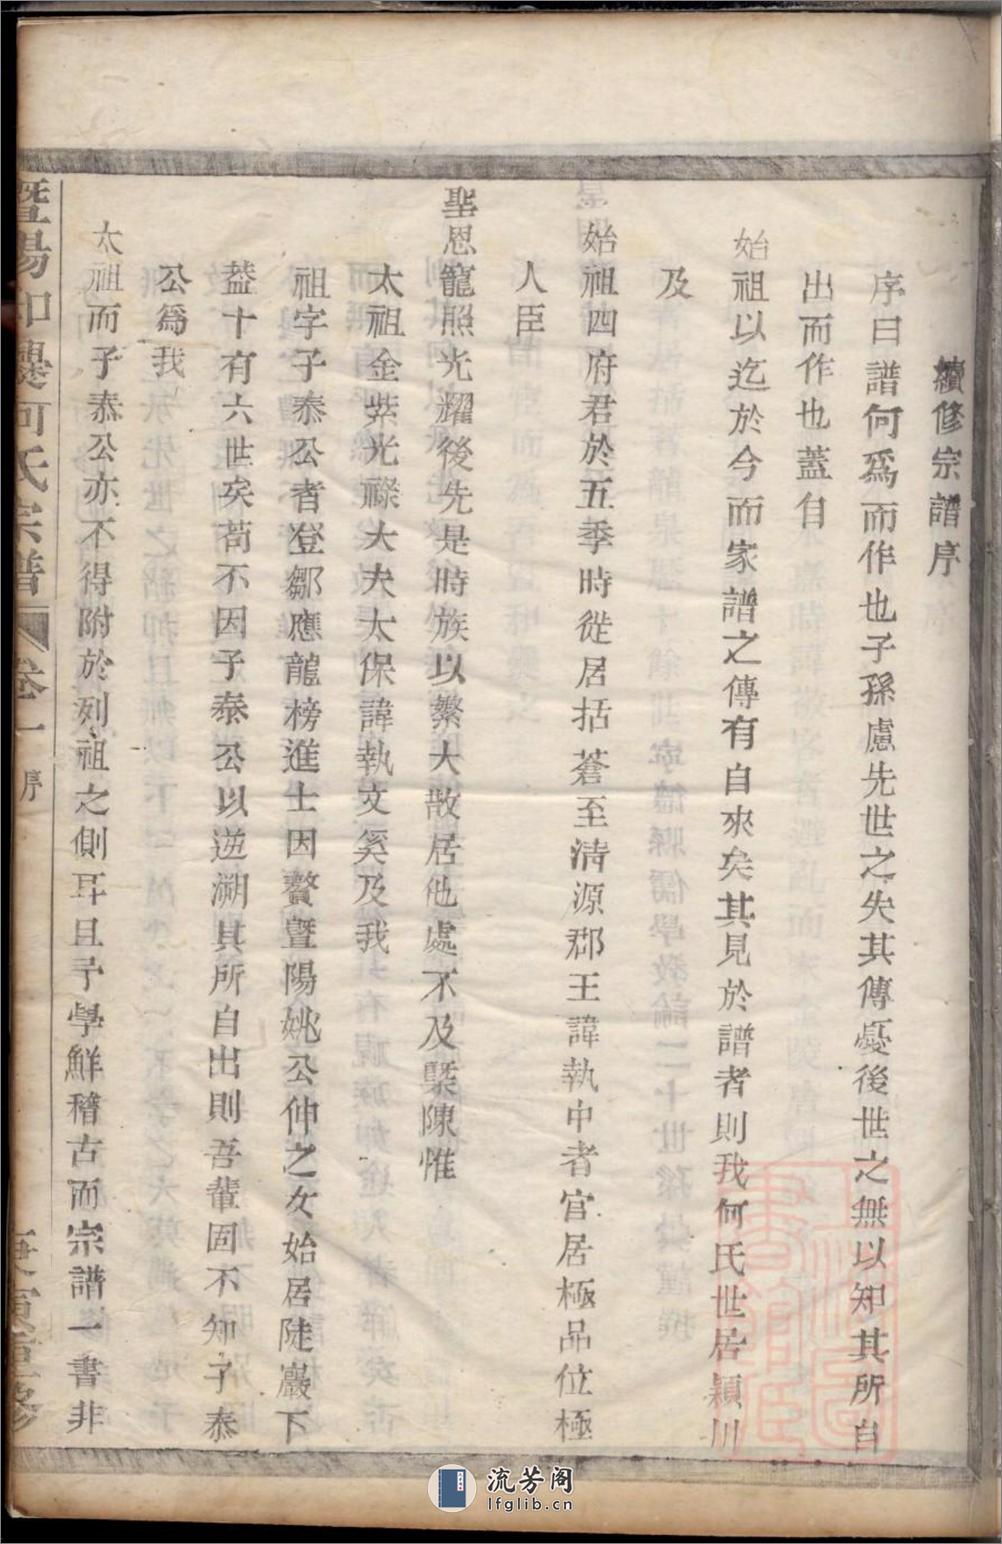 續修宗譜序
序曰譜何爲而作也子孫慮先世之失其傳憂後世之無以知其所自
出而作也蓋自
始祖以迄於今而家譜之傳有自來矣其見於譜者則我何氏世居潁川
及
始祖四府君於五季時從居括蒼至清源郡王諱執中者官居極品位極
人臣
聖恩寵照光耀後先是時族以繁大散居他處不及槩陳惟
太祖金紫光祿大夫太保諱執文奚及我
祖字子泰公者登鄒應龍榜進士因贅暨陽姚公仲之女始居陡巖下
葢十有六世矣苟不因子泰公以遡溯其所自出則吾輩固不知子泰
公爲我
太祖而子泰公亦不得附於列祖之側耳且予學鮮稽古而宗譜一書非
暨陽 何氏宗譜 卷一 序 庚寅重修
流芳阁
lfglib.cn